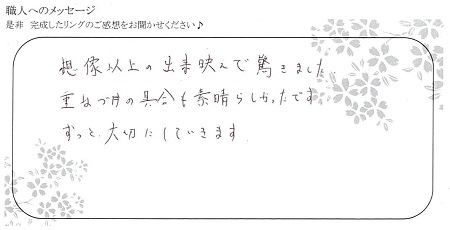 職人へのメッセージ
是非 完成したリングのご感想をお聞かせください♪
想像以上の出来映えで驚きました
重ねづけの具合も素晴らしかったです
ずっと大切にしていきます